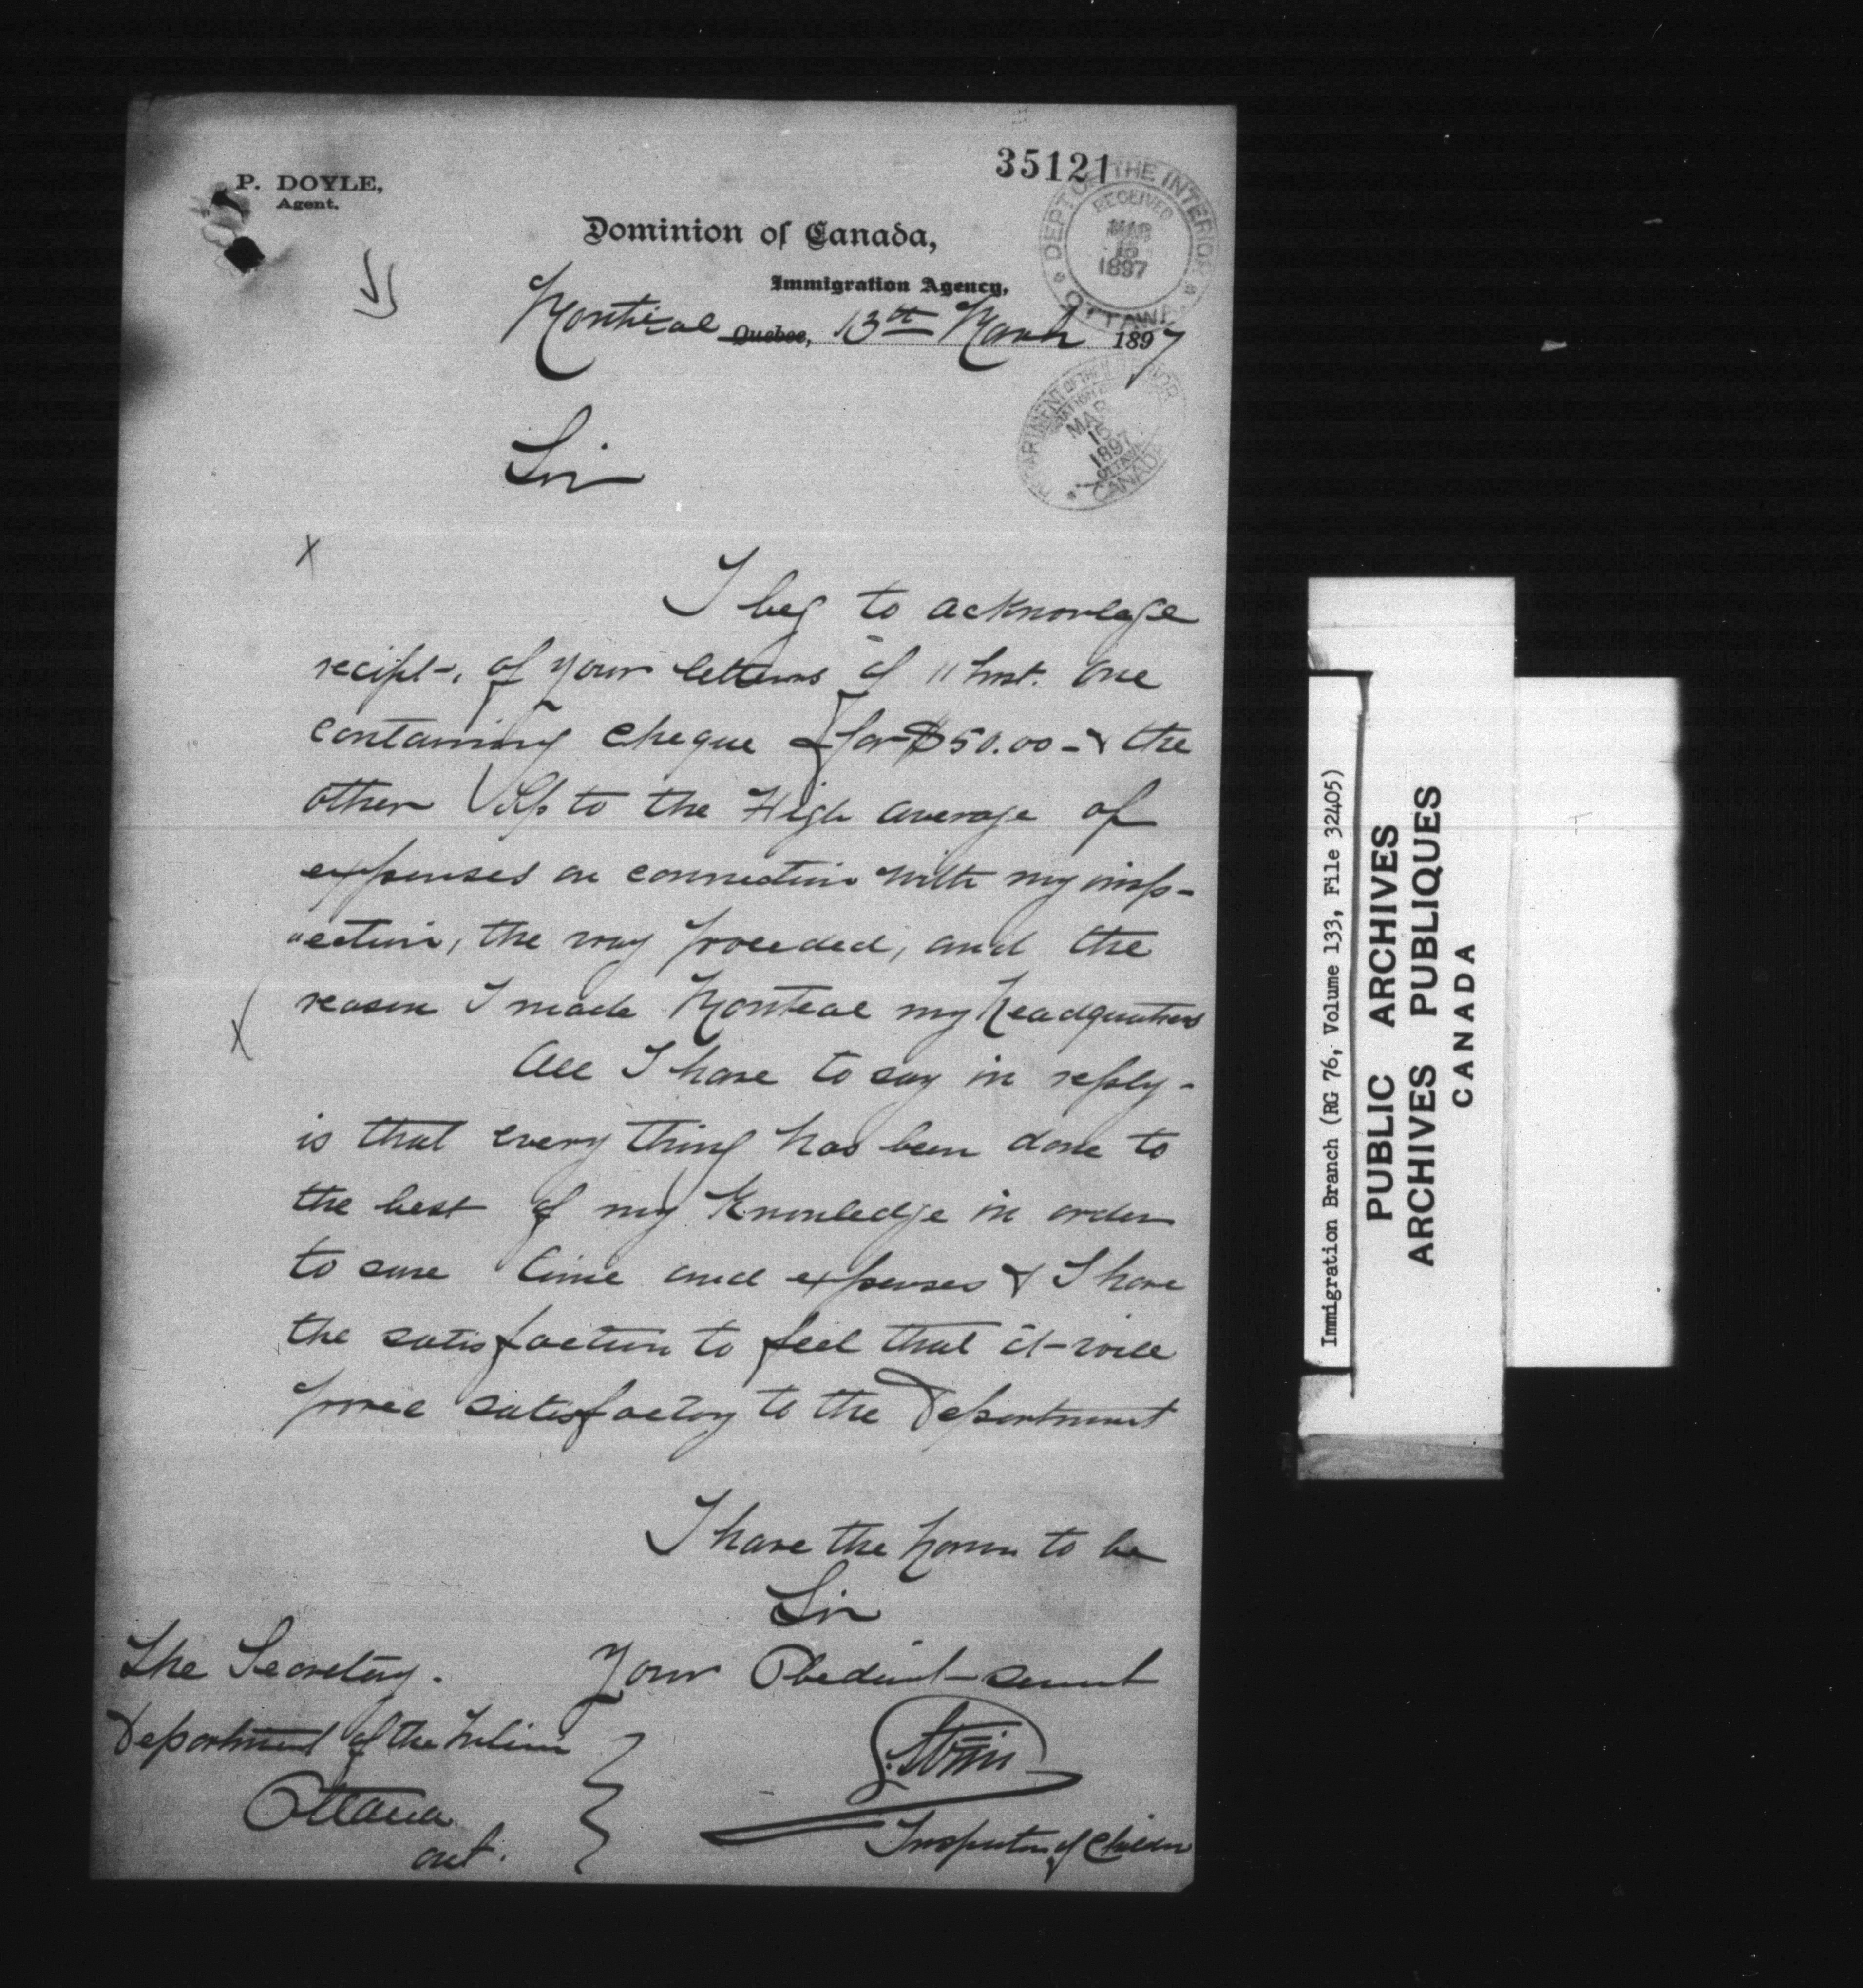 35121
P. DOYLE,
Agent.
DEPT OF THE INTERIOR
RECEIVED
MAR
15
1897
OTTAWA
Dominion of Canada,
Immigration Agency,
Montreal Quebec, 13th March 1897
DEPARTMENT OF THE INTERIOR
MAR
15
1897
OTTAWA
CANADA
Sir
X
I beg to acknowlege
recipt, of your letters of 11 Inst. One
containing Cheque for $50.00 - & the
other to the High average of
expenses on connection with my insp-
"ection, the way proceeded, and the
reason I made Monteal my headquaters
X
All I have to say in reply -
is that every thing has been done to
the best of my Knowledge in order
to save time and expenses & I have
the satisfaction to feel that it will
prove satisfactory to the Department
I have the honor to be
Sir
Your Obedient servent
The Secretary.
Department of the Interior
Ottawa
Ont.
Inspector of Children
Immigration Branch (RG 76, Volume 133, File 32405)
PUBLIC ARCHIVES
ARCHIVES PUBLIQUES
CANADA